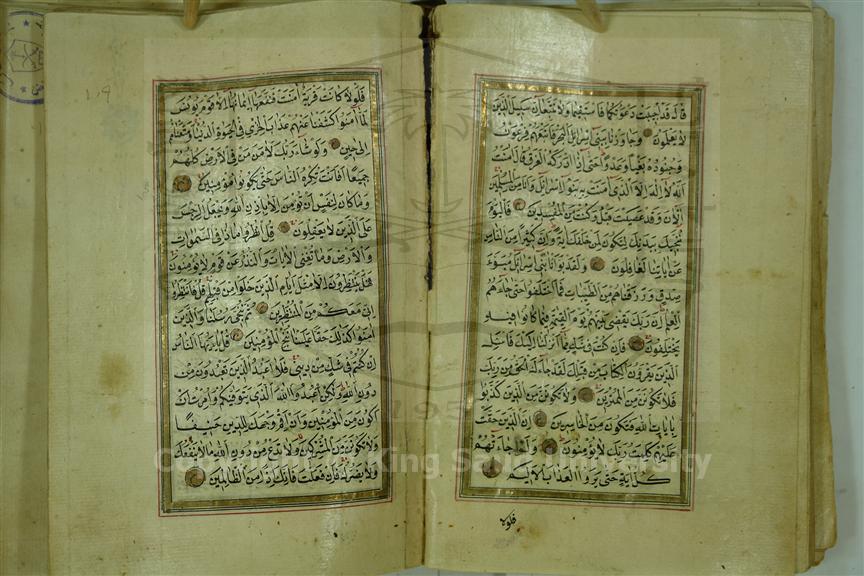 قال قد اجيبت دعوتكما فاستقيما ولا تتبعان سبيل الذين
لا يعلمون وجاوزنا ببني اسرائل البحر فاتبعهم فرعون
وجنوده بغيا وعدوا حتى اذا ادركه الغرق قال امنت
انه لا اله الا الذي امنت به بنوا اسرائل وانا من المسلمين
الآن وقد عصيت قبل وكنت من المفسدين فاليوم
ننجيك ببدنك لتكون لمن خلفك اية وان كثيرا من الناس
عن اياتنا لغافلون ولقد بوانا بني اسرائل مبوء
صدق ورزقناهم من الطيبات فما اختلفوا حتى جاءهم
العلم ان ربك يقضي بينهم يوم القيمة فيما كانوا فيه
يختلفون فان كنت في شك مما انزلنا اليك فاسئل
الذين يقرؤن الكتاب من قبلك لقد جاءك الحق من ربك
فلا تكونن من الممترين ولا تكونن من الذين كذبوا
بايات الله فتكون من الخاسرين ان الذين حقت
عليهم كلمت ربك لا يؤمنون ولو جاءتهم
كل اية حتى يروا العذاب الاليم
فلولا
فلولا كانت قرية امنت فنفعها ايمانها الا قوم يونس
لما امنوا كشفنا عنهم عذاب الخزي في الحيوة الدنيا ومتعناهم
الى حين ولو شاء ربك لامن من في الارض كلهم
جميعا افانت تكره الناس حتى يكونوا مؤمنين
وما كان لنفس ان تؤمن الا باذن الله ويجعل الرجس
على الذين لا يعقلون قل انظروا ماذا في السموات
والارض وما تغني الايات والنذر عن قوم لا يؤمنون
فهل ينتظرون الا مثل ايام الذين خلوا من قبلهم قل فانتظروا
اني معكم من المنتظرين ثم ننجي رسلنا والذين
امنوا كذلك حقا علينا ننج المؤمنين قل يا ايها الناس
ان كنتم في شك من ديني فلا اعبد الذين تعبدون من
دون الله ولكن اعبد الله الذي يتوفيكم وامرت ان
اكون من المؤمنين وان اقم وجهك للدين حنيفا
ولا تكونن من المشركين ولا تدع من دون الله ما لا ينفعك
ولا يضرك فان فعلت فانك اذا من الظالمين
١٠٩
1957
King Saud University